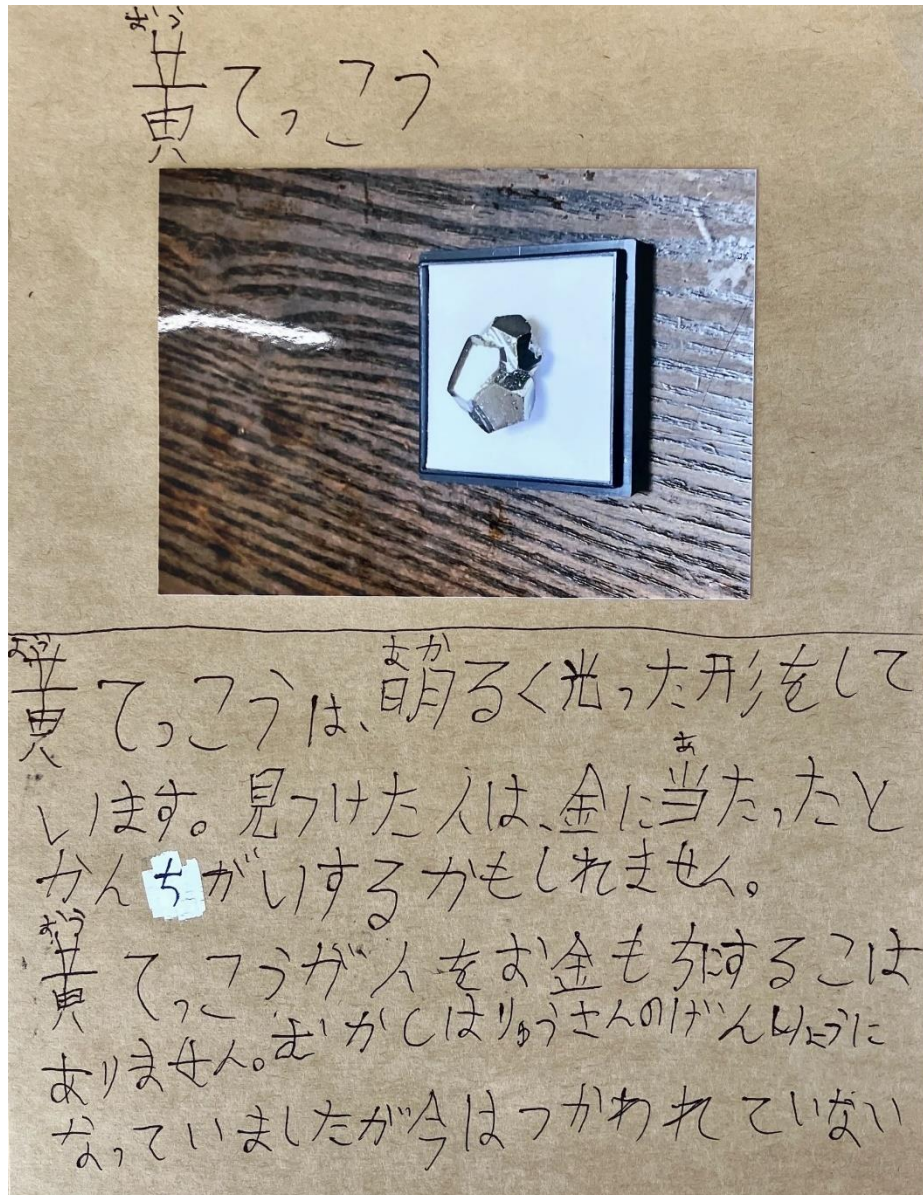 おう
黄てっこう
おう
あか
黄てっこうは、明るく光った形をして
あ
います。見つけた人は、金に当たったと
かんちがいするかもしれません。
おう
黄てっこうが人をお金もちにするこは
ありません。むかしはりゅうさんのげんりょうに
なっていましたが今はつかわれていない